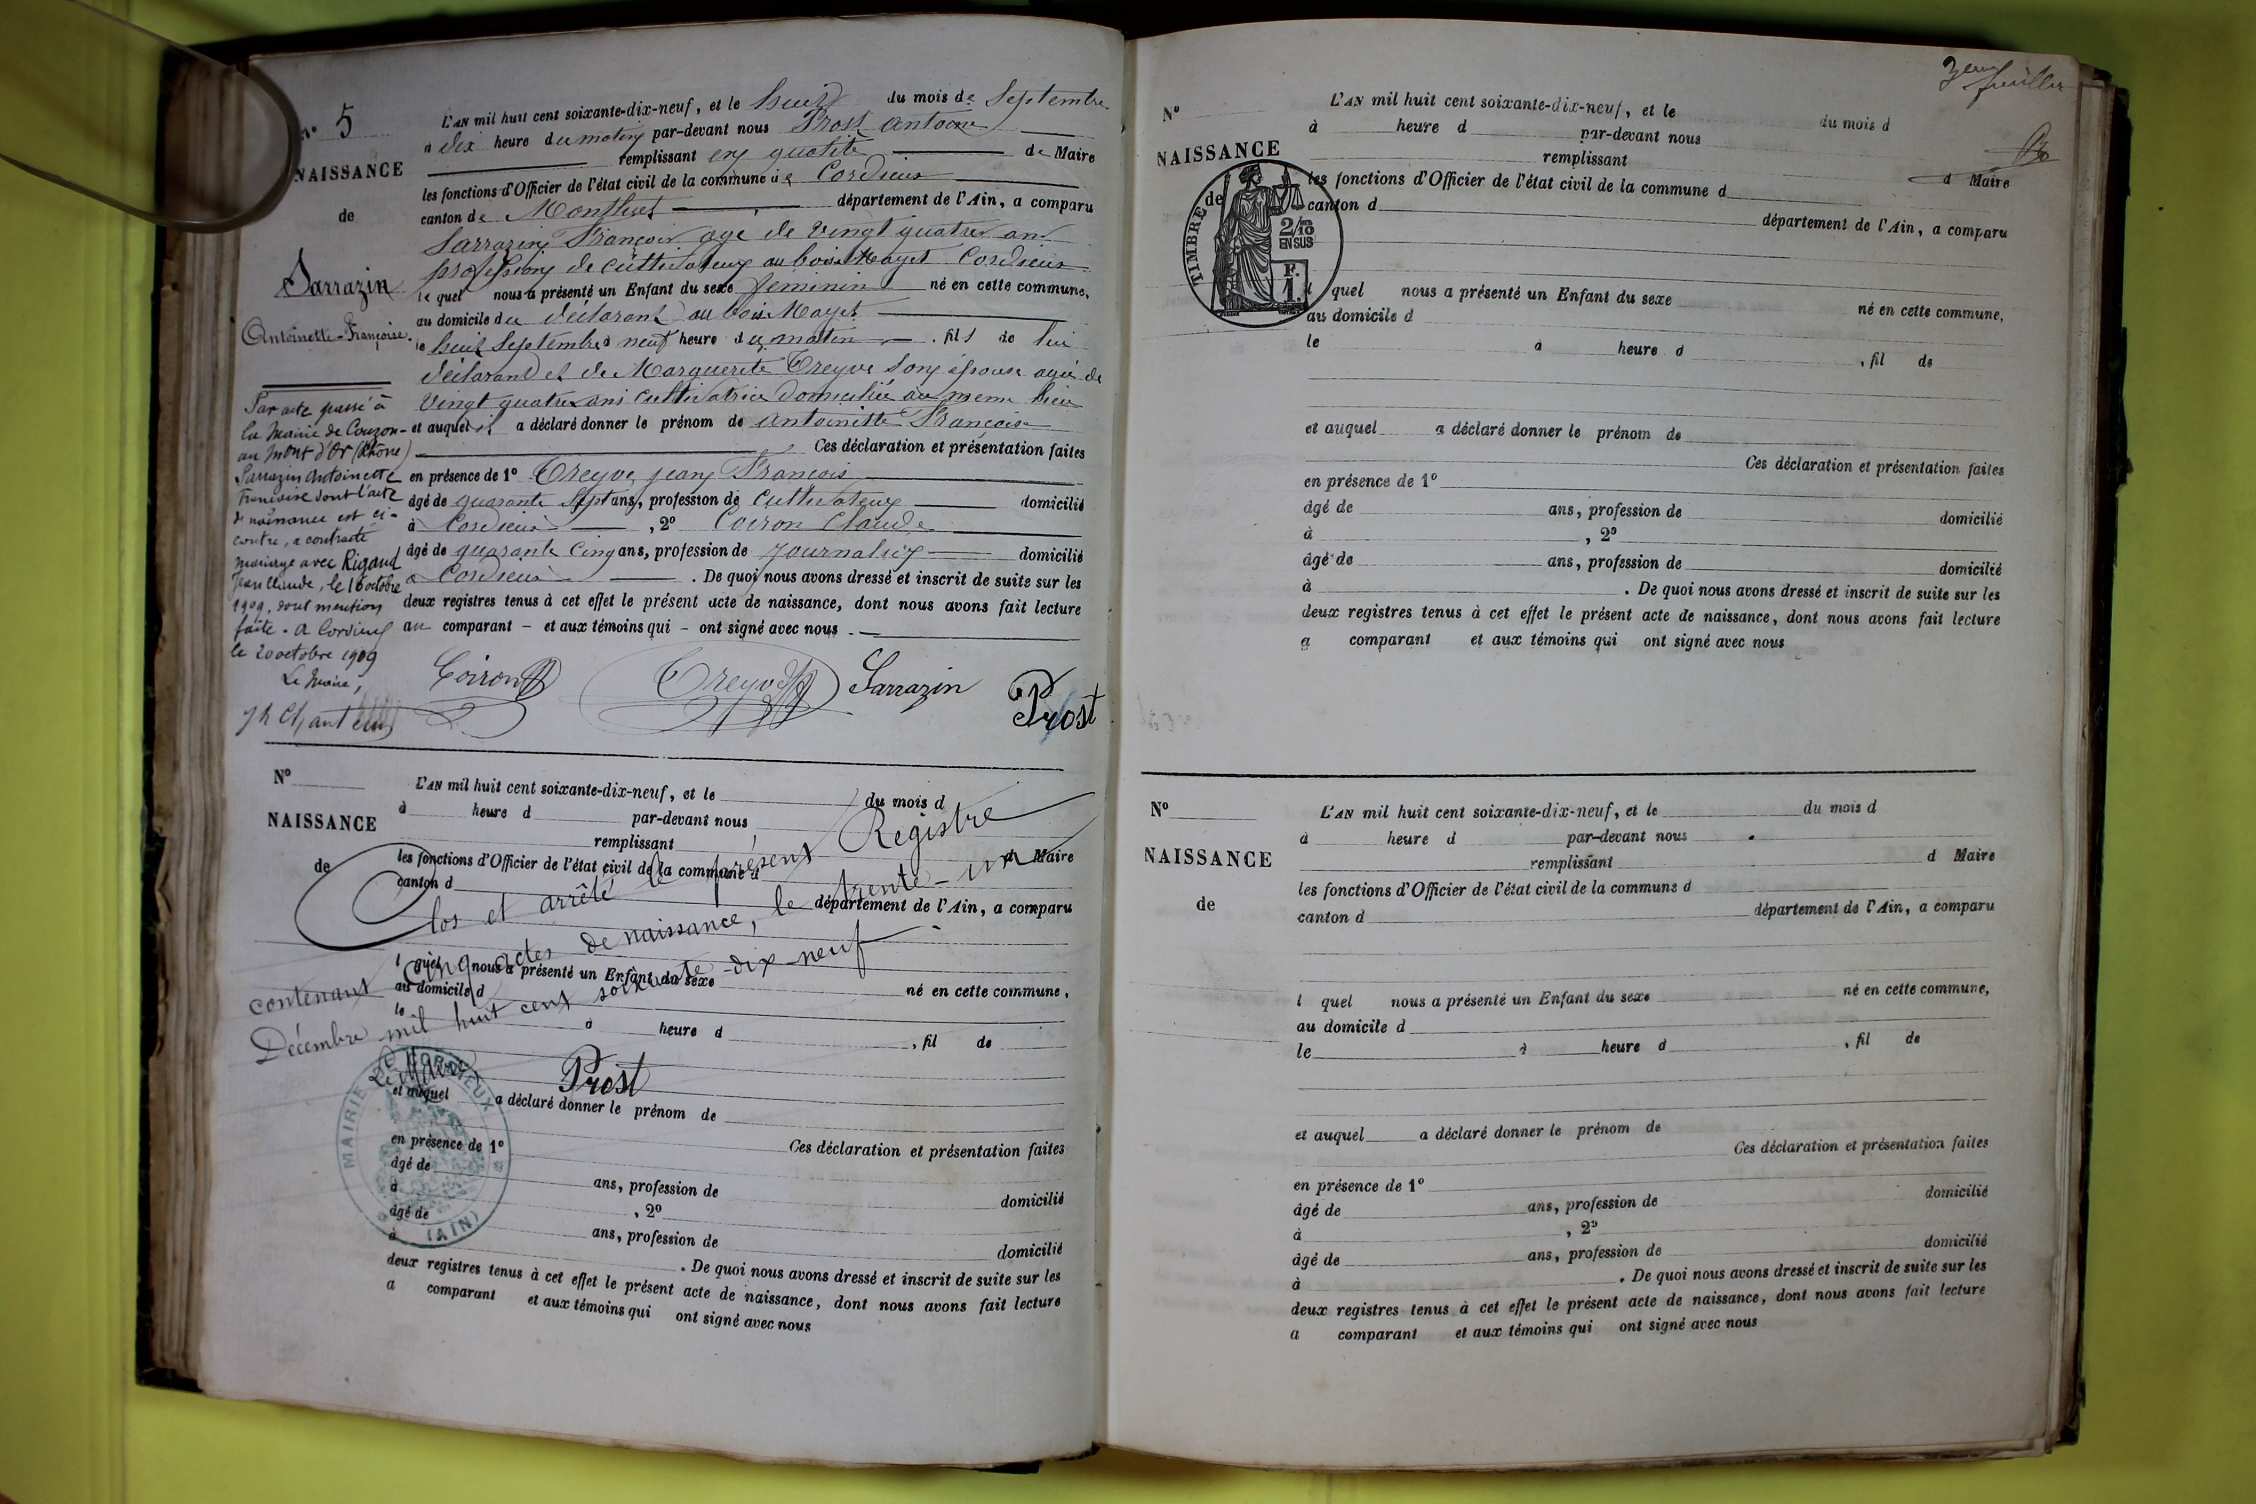 N° 5
NAISSANCE
de
Sarrazin
Antoinette-Françoise.
Par acte passé à
la Mairie de Couzon-
au Mont d'Or (Rhône)
Sarrazin Antoinette
Françoise dont l'acte
de naissance est ci-
contre, a contracté
mariage avec Rigaud
Jean Claude, le 16 octobre
1909, dont mention
faite. A Cordieux
le 20 octobre 1909
Le Maire,
L'AN mil huit cent soixante-dix-neuf, et le huit du mois de Septembre
à dix heure du matin par-devant nous Prost antoine
remplissant en qualité de Maire
les fonctions d'Officier de l'état civil de la commune de Cordieux
canton de Montluel département de l'Ain, a comparu
Sarrazin François age de vingt quatre an
profession de cultivateur au bois Mayet Cordieux
le quel nous a présenté un Enfant du sexe feminin né en cette commune,
au domicile du déclarant au bois Mayet
le huit Septembre à neuf heure du matin, fils de lui
déclarant et de Marguerite Treyve son épouse agée de
vingt quatre ans cultivatrice domiciliée au meme lieu
et auquel il a déclaré donner le prénom de antoinette Françoise
Ces déclaration et présentation faites
en présence de 1° Treyve jean François
âgé de quarante Sept ans, profession de cultivateur domicilié
à Cordieux, 2° Coiron Claude
âgé de quarante Cinq ans, profession de journalier domicilié
à Cordieux. De quoi nous avons dressé et inscrit de suite sur les
deux registres tenus à cet effet le présent acte de naissance, dont nous avons fait lecture
au comparant - et aux témoins qui - ont signé avec nous.
Coiron Treyve Sarrazin Prost
N°
NAISSANCE
de
L'AN mil huit cent soixante-dix-neuf, et le du mois d
à heure d par-devant nous
remplissant d Maire
les fonctions d'Officier de l'état civil de la commune d
canton d département de l'Ain, a comparu
l quel nous a présenté un Enfant du sexe né en cette commune,
au domicile d
le à heure d , fil de
et auquel a déclaré donner le prénom de
Ces déclaration et présentation faites
en présence de 1°
âgé de ans, profession de domicilié
à , 2°
âgé de ans, profession de domicilié
à . De quoi nous avons dressé et inscrit de suite sur les
deux registres tenus à cet effet le présent acte de naissance, dont nous avons fait lecture
a comparant et aux témoins qui ont signé avec nous
Clos et arrêté le présent Registre
contenant cinq actes de naissance, le trente-un
Décembre mil huit cent soixante-dix-neuf.
Le Maire
Prost
MAIRIE DE CORDIEUX
(AIN)
3eme feuillet
N°
NAISSANCE
de
TIMBRE
2/10
EN SUS
F.
1.
L'AN mil huit cent soixante-dix-neuf, et le du mois d
à heure d par-devant nous
remplissant d Maire
les fonctions d'Officier de l'état civil de la commune d
canton d département de l'Ain, a comparu
l quel nous a présenté un Enfant du sexe né en cette commune,
au domicile d
le à heure d , fil de
et auquel a déclaré donner le prénom de
Ces déclaration et présentation faites
en présence de 1°
âgé de ans, profession de domicilié
à , 2°
âgé de ans, profession de domicilié
à . De quoi nous avons dressé et inscrit de suite sur les
deux registres tenus à cet effet le présent acte de naissance, dont nous avons fait lecture
a comparant et aux témoins qui ont signé avec nous
N°
NAISSANCE
de
L'AN mil huit cent soixante-dix-neuf, et le du mois d
à heure d par-devant nous
remplissant d Maire
les fonctions d'Officier de l'état civil de la commune d
canton d département de l'Ain, a comparu
l quel nous a présenté un Enfant du sexe né en cette commune,
au domicile d
le à heure d , fil de
et auquel a déclaré donner le prénom de
Ces déclaration et présentation faites
en présence de 1°
âgé de ans, profession de domicilié
à , 2°
âgé de ans, profession de domicilié
à . De quoi nous avons dressé et inscrit de suite sur les
deux registres tenus à cet effet le présent acte de naissance, dont nous avons fait lecture
a comparant et aux témoins qui ont signé avec nous